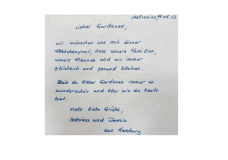 Lieber Gardasee,
wir wünschen uns mit dieser
Flaschenpost, dass unsere Familien,
unsere Freunde und wir immer
glücklich und gesund bleiben.
Bleib du lieber Gardasee immer so
wunderschön und klar wie du heute
bist.
Viele liebe Grüße,
Sabrina und
aus Hamburg